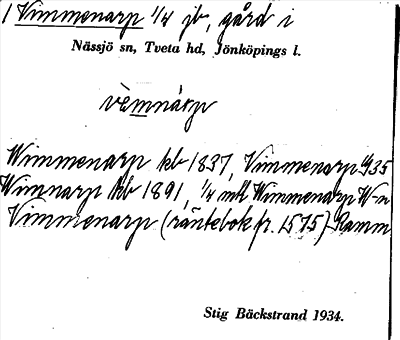 1 Vimmenarp 1/4 jb, gård i
Nässjö sn, Tveta hd, Jönköpings l.
vèmnárp
Wimmenarp kb 1837, Vimmenarp G35
Wimnarp kb 1891, 1/4 mtl Wimmenarp W-n
Vimmenarp (räntebok fr. 1575) Ramm
Stig Bäckstrand 1934.